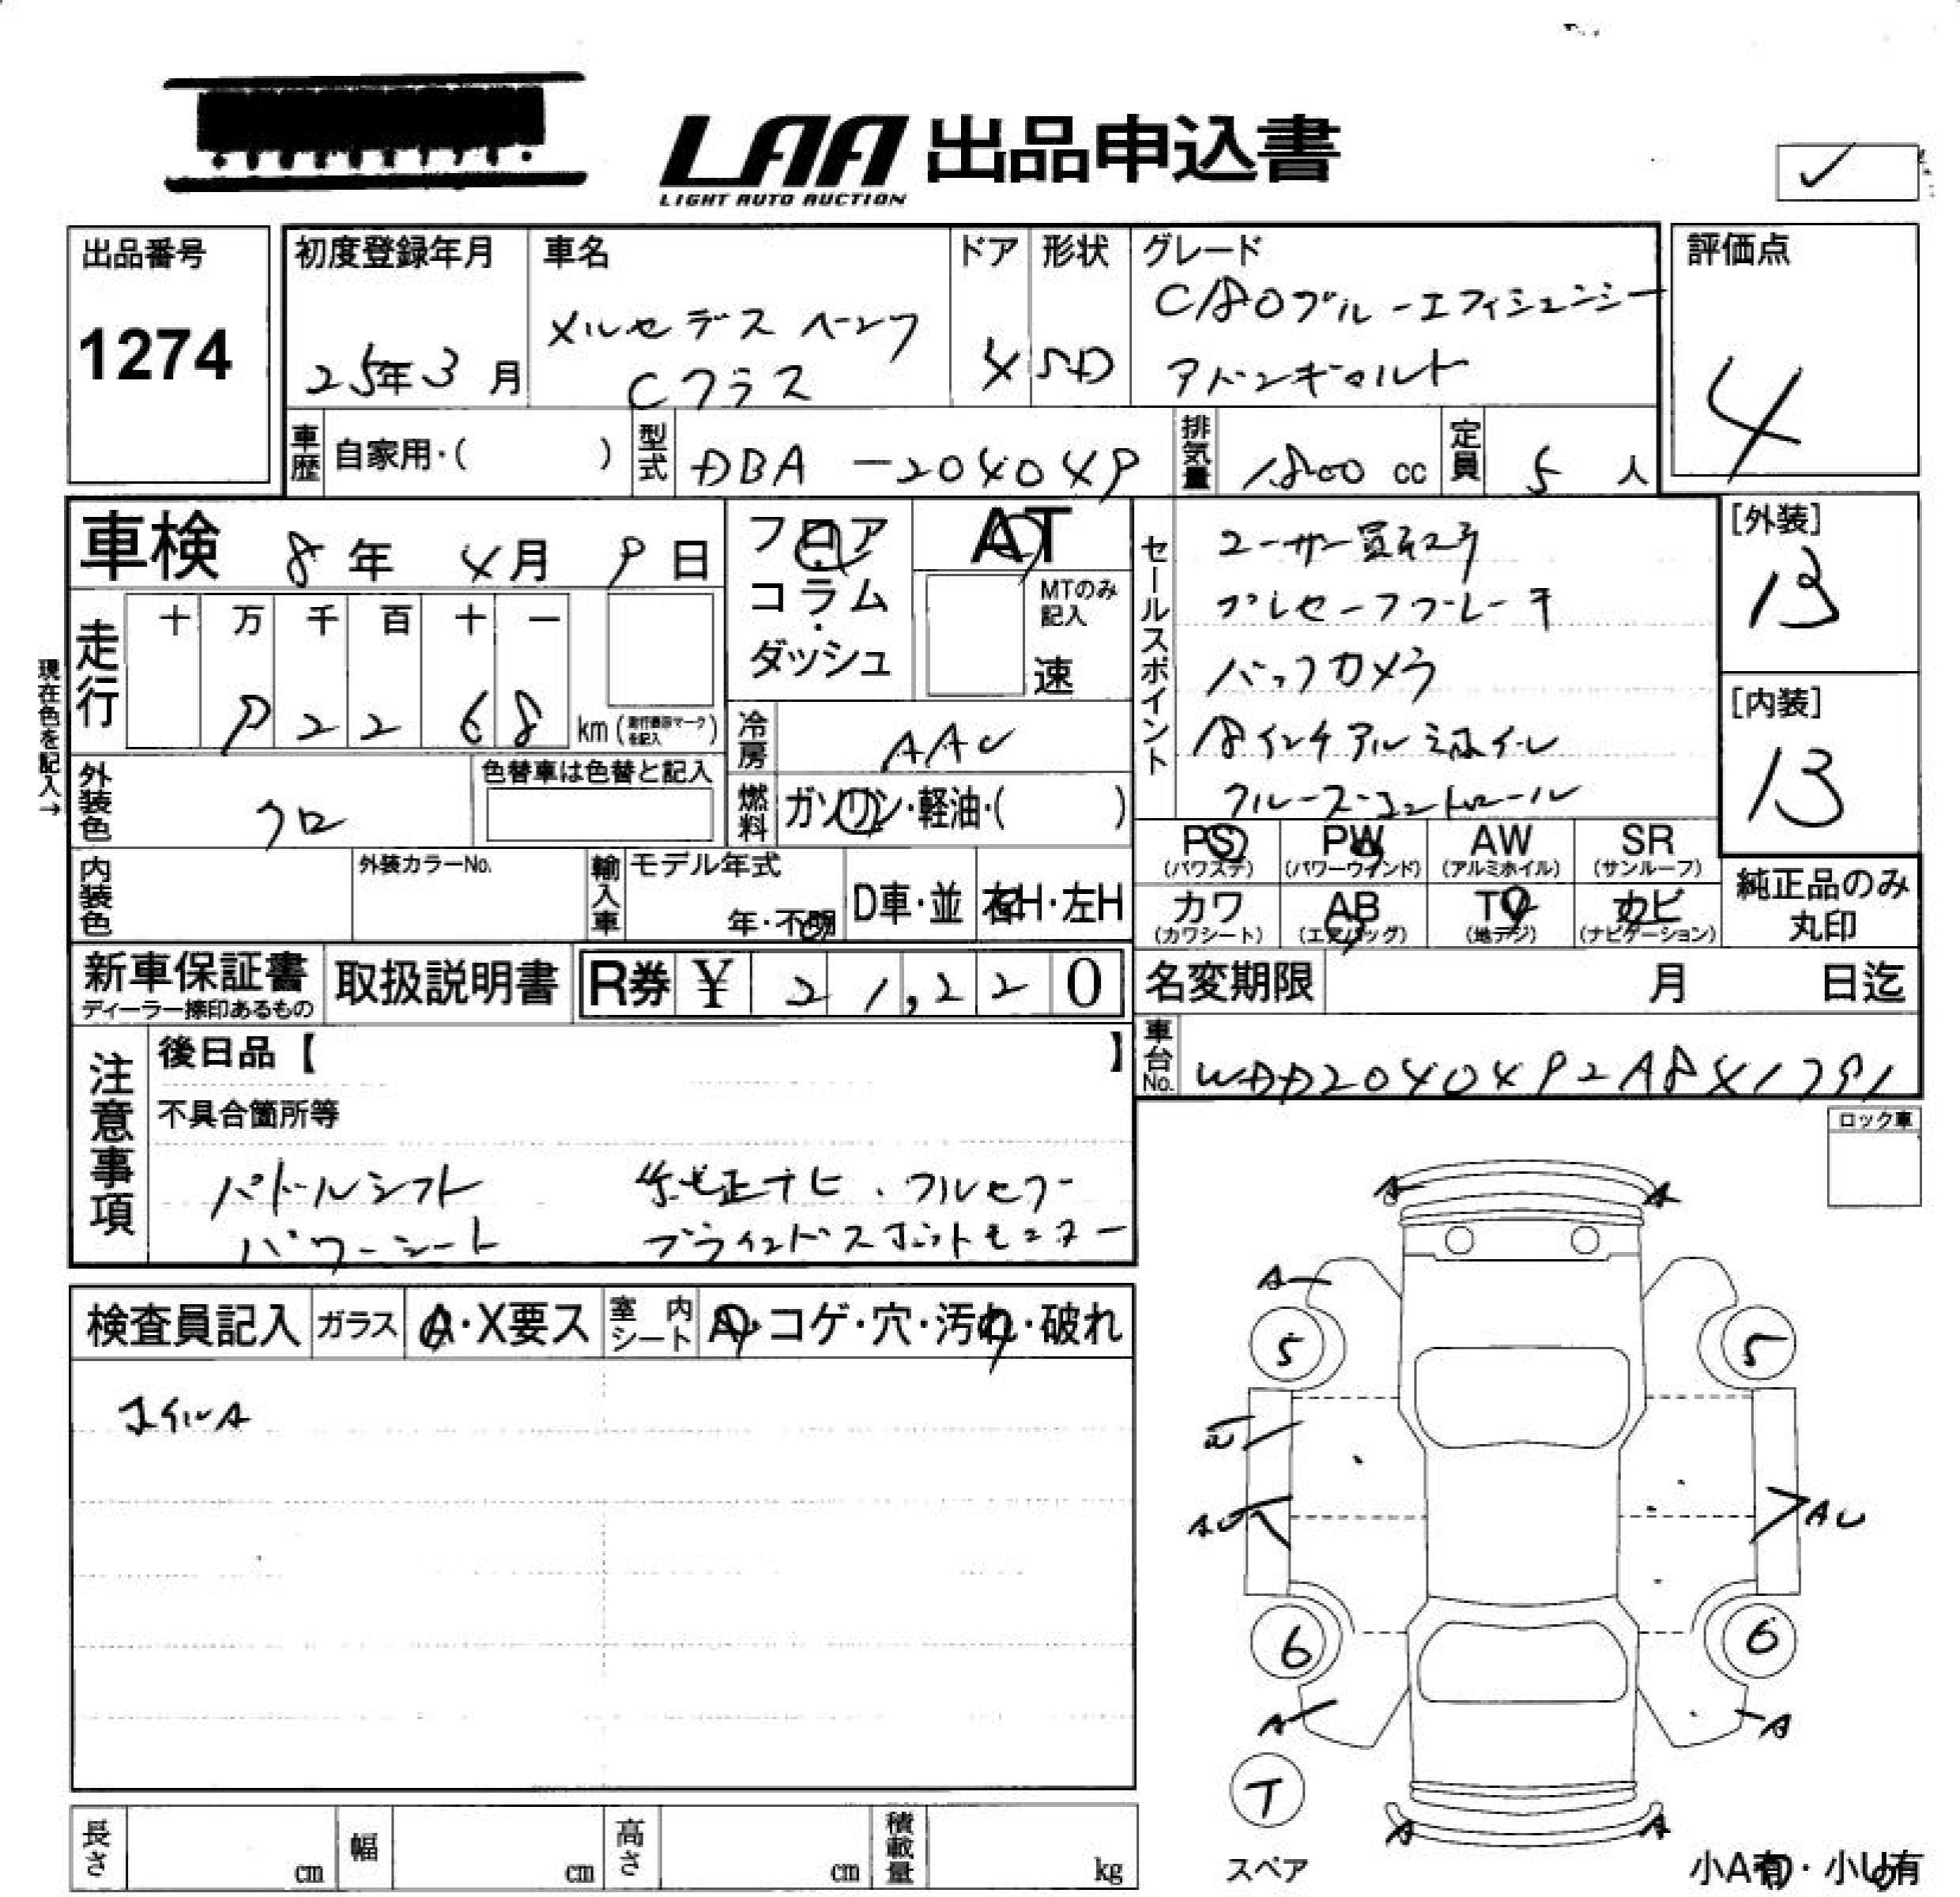 LAA 出品申込書
LIGHT AUTO AUCTION
出品番号
1274
初度登録年月
25年3月
車名
メルセデスベンツ
Cクラス
ドア
4
形状
SD
グレード
C180ブルーエフィシェンシー
アバンギャルト
評価点
4
車歴 自家用・( )
型式 DBA-204049
排気量 1800 cc
定員 5 人
車検 8年4月9日
フロア
・
コラム
・
ダッシュ
AT
MTのみ
記入
速
セールスポイント
ユーザー買取り
プレセーフブレーキ
バックカメラ
18インチアルミホイール
クルーズコントロール
[外装]
13
[内装]
13
現在色を記入→
走行
十 万 千 百 十 一
9 2 2 6 8 km (走行表示マークを記入)
冷房 AAC
燃料 ガソリン・軽油・( )
外装色 クロ
色替車は色替と記入
内装色
外装カラーNo.
輸入車
モデル年式
年・不明
D車・並
右H・左H
PS (パワステ)
PW (パワーウインド)
AW (アルミホイル)
SR (サンルーフ)
カワ (カワシート)
AB (エアバッグ)
TV (地デジ)
カビ (ナビゲーション)
純正品のみ
丸印
新車保証書
ディーラー捺印あるもの
取扱説明書
R券 ¥ 21,220
名変期限 月 日迄
車台No. WDD2040492A841791
注意事項
後日品【 】
不具合箇所等
パドルシフト 純正ナビ、フルセグ
パワーシート ブラインドスポットモニター
ロック車
検査員記入
ガラス A・X要ス
室内シート A・コゲ・穴・汚れ・破れ
ホイルA
A A
A
5 5
U
AU AU
6 6
A A
T
スペア
A A
小A有・小U有
長さ cm
幅 cm
高さ cm
積載量 kg